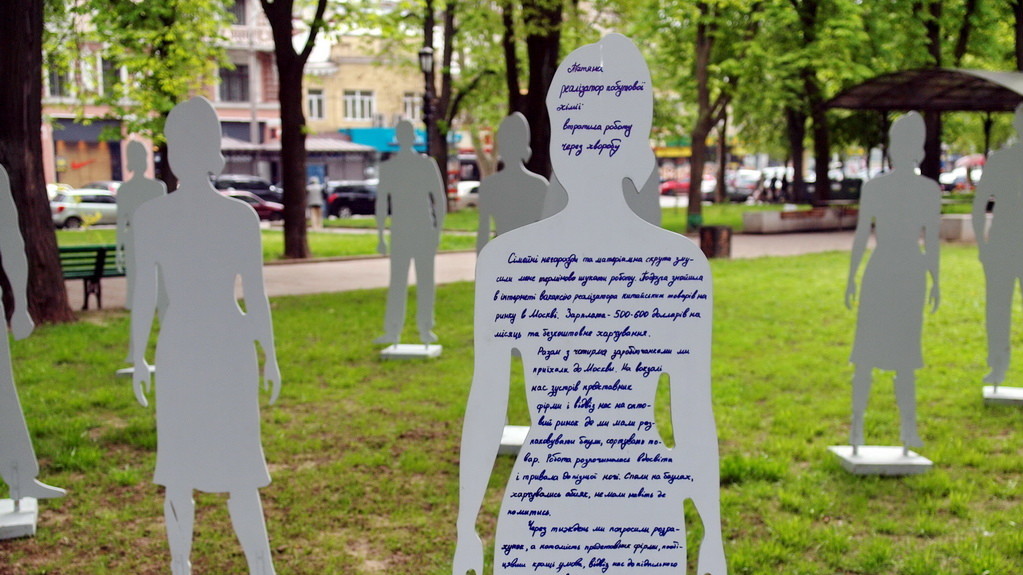 Тетяна
реалізатор побутової
хімії
втратила роботу
через хворобу
Сімейні негаразди та матеріальна скрута зму-
сили мене терміново шукати роботу. Подруга знайшла
в інтернеті вакансію реалізатора китайських товарів на
ринку в Москві. Зарплата - 500-600 долларів на
місяць та безкоштовне харчування.
Разом з чотирма заробітчанками ми
приїхали до Москви. На вокзалі
нас зустрів представник
фірми і відвіз нас на опто-
вий ринок де ми мали роз-
паковувати баули, сортувати то-
вар. Робота розпочиналась вдосвіта
і тривала до пізньої ночі. Спали на баулах,
харчувались абияк, не мали навіть де
помитись.
Через тиждень ми попросили розра-
хунок, а натомість представник фірми, пообі-
цявши кращі умови, відвіз нас до підпільного